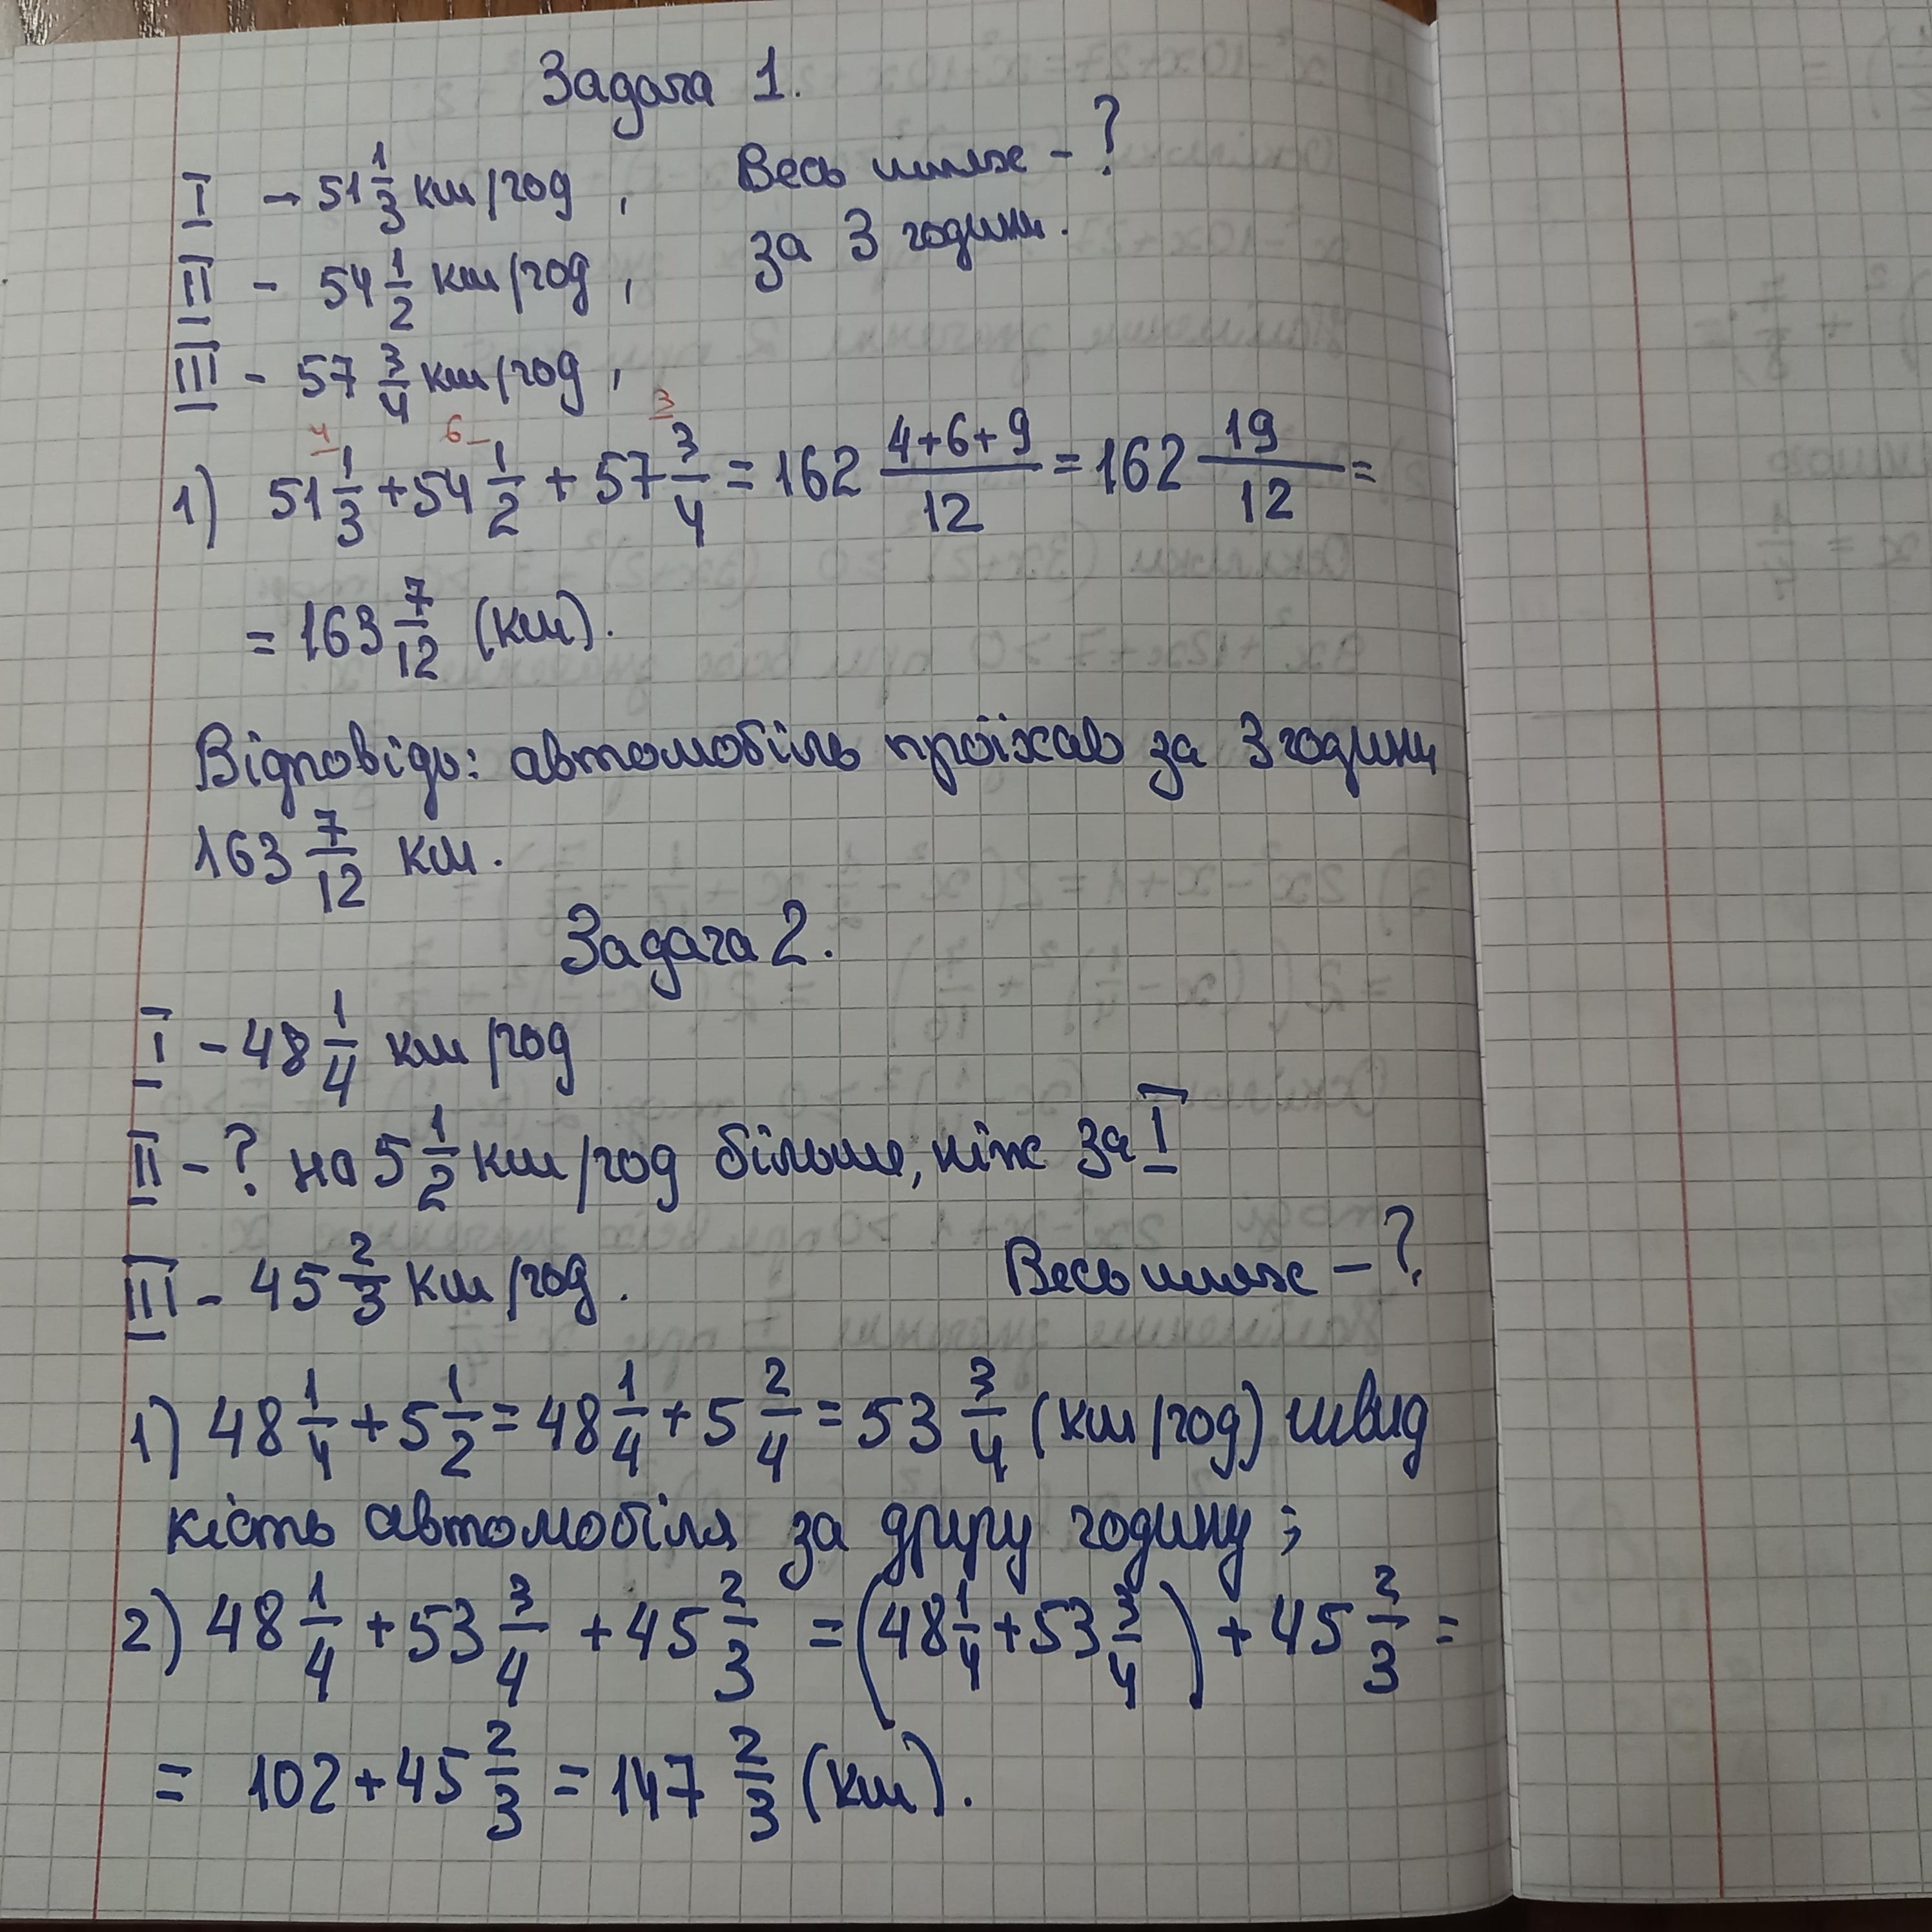 Задача 1.
I – 51 1/3 км/год, Весь шлях – ?
II – 54 1/2 км/год, за 3 години.
III – 57 3/4 км/год,
4 6 3
1) 51 1/3 + 54 1/2 + 57 3/4 = 162 (4+6+9)/12 = 162 19/12 =
= 163 7/12 (км).
Відповідь: автомобіль проїхав за 3 години
163 7/12 км.
Задача 2.
I – 48 1/4 км/год
II – ? на 5 1/2 км/год більше, ніж за I
III – 45 2/3 км/год. Весь шлях – ?
1) 48 1/4 + 5 1/2 = 48 1/4 + 5 2/4 = 53 3/4 (км/год) швид
кість автомобіля за другу годину;
2) 48 1/4 + 53 3/4 + 45 2/3 = (48 1/4 + 53 3/4) + 45 2/3 =
= 102 + 45 2/3 = 147 2/3 (км).